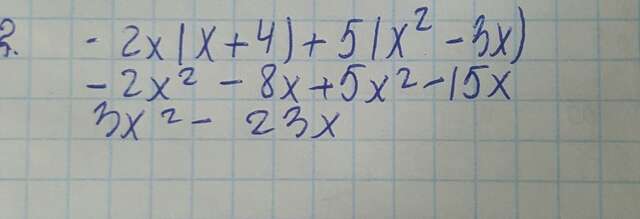 2. - 2x(x+4)+5(x² - 3x)
- 2x² - 8x+5x² - 15x
3x² - 23x